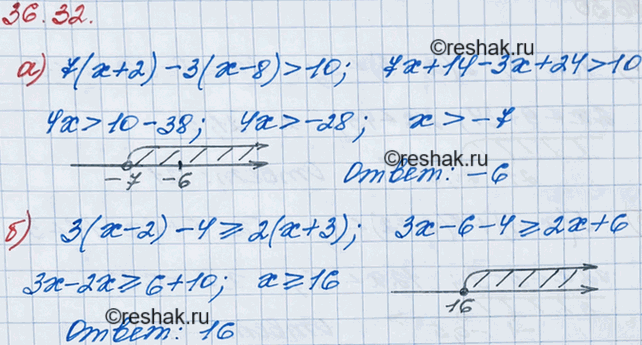 36.32.
©reshak.ru
а) 7(x+2)-3(x-8)>10; 7x+14-3x+24>10
4x>10-38; 4x>-28; x>-7
©reshak.ru
-7 -6 Ответ: -6
©reshak.ru
б) 3(x-2)-4⩾2(x+3); 3x-6-4⩾2x+6
3x-2x⩾6+10; x⩾16
16
Ответ: 16
©reshak.ru